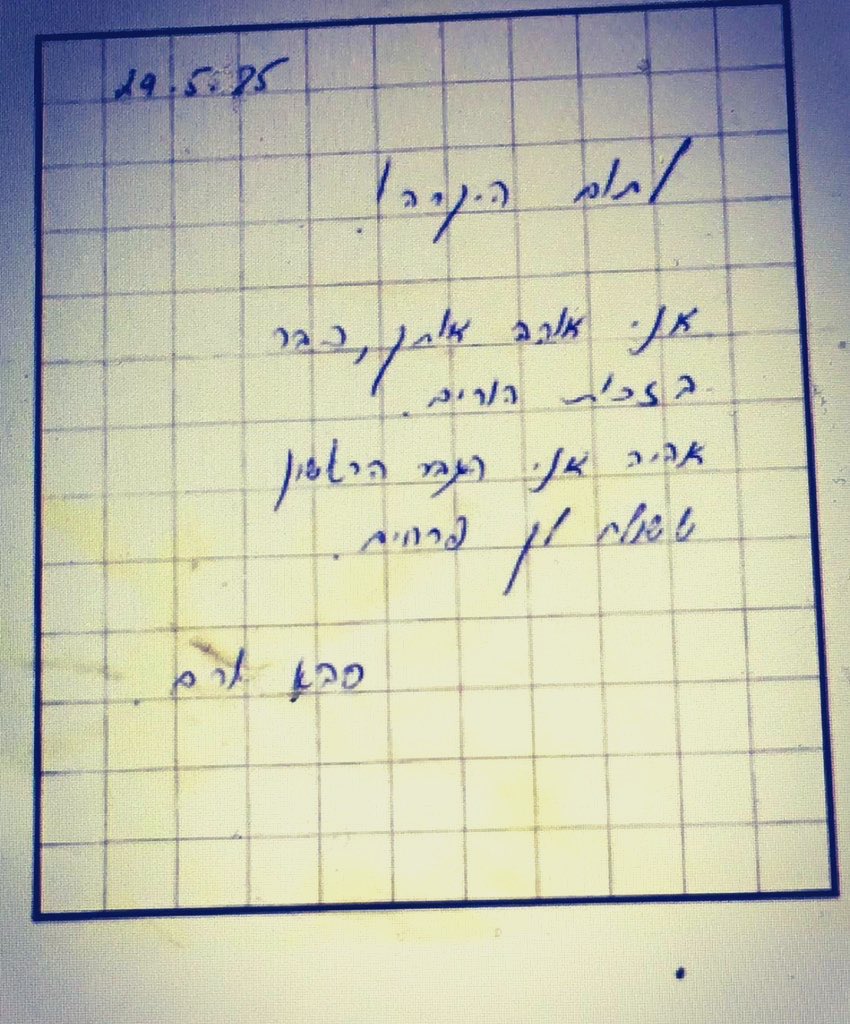 29.5.85
לתום היקרה!
אני אוהב אותך, כבר
בזכות הורים.
אהיה אני הגבר הראשון
ששולח לך פרחים.
סבא